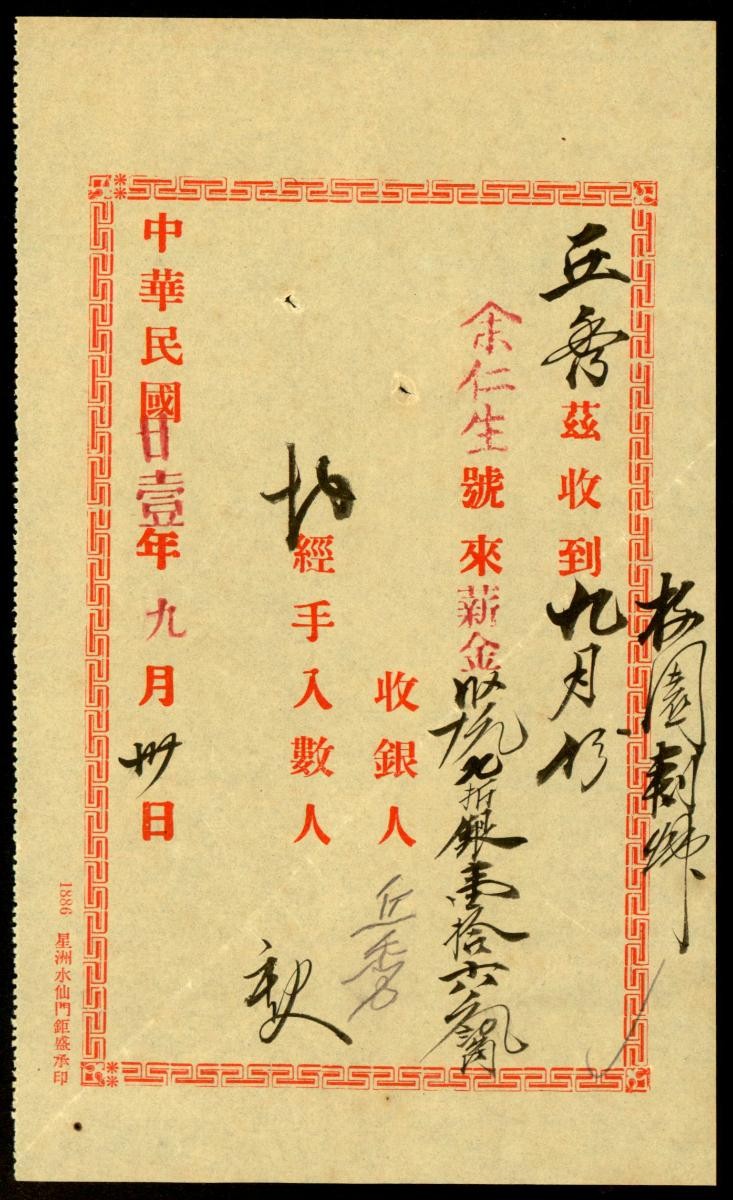 園
丘秀茲收到九月份
余仁生號來薪金 九折銀壹拾六
收銀人 丘秀
經手入數人
中華民國廿壹年九月卅日
1886 星洲水仙門鉅盛承印